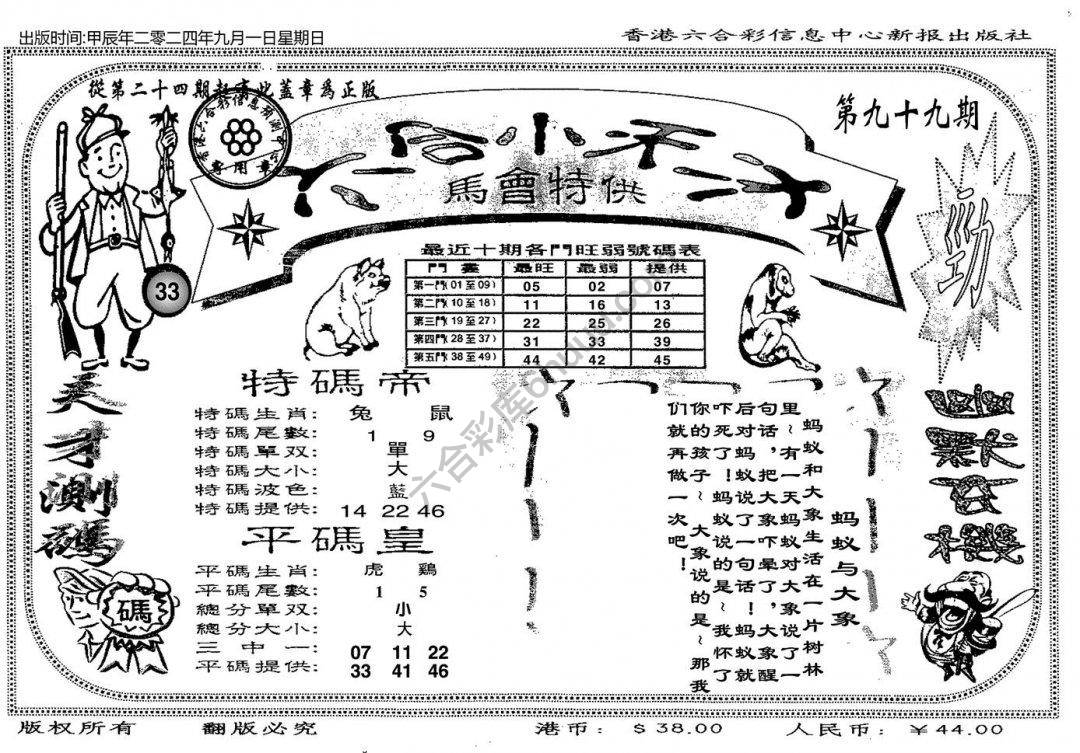 出版时间:甲辰年二零二四年九月一日星期日
香港六合彩信息中心新报出版社
從第二十四期起憑此蓋章爲正版
第九十九期
專用章
馬會特供
勁
33
最近十期各門旺弱號碼表
門畫 最旺 最弱 提供
第一門(01至09) 05 02 07
第二門(10至18) 11 16 13
第三門(19至27) 22 25 26
第四門(28至37) 31 33 39
第五門(38至49) 44 42 45
天才測碼
碼
特碼帝
特碼生肖: 兔 鼠
特碼尾數: 1 9
特碼單双: 單
特碼大小: 大
特碼波色: 藍
特碼提供: 14 22 46
平碼皇
平碼生肖: 虎 鷄
平碼尾數: 1 5
總分單双: 小
總分大小: 大
三中一: 07 11 22
平碼提供: 33 41 46
蚂蚁与大象
蚂蚁和大象生活在一片树林
里~有一天蚂蚁对大象说了一
句话，把大象吓晕了，大象醒
后对蚂蚁说了一句话！蚂蚁就
吓死了！蚂蚁说的是~我怀了
你的孩子~大象说的是~那我
们就再做一次吧！
六合彩库6huuu.co
版权所有
翻版必究
港币: $ 38.00
人民币: ￥44.00